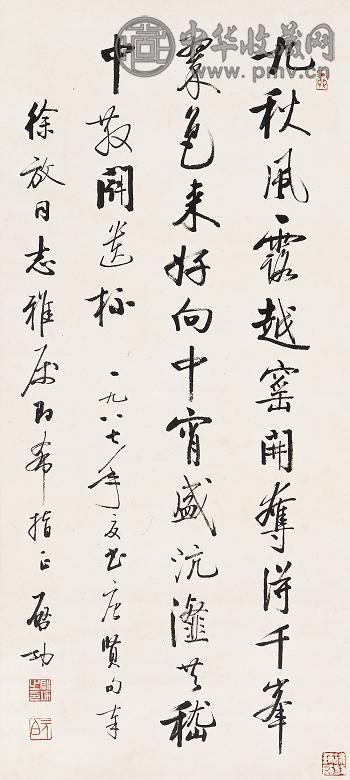 中华收藏网
www.pmv.cn
九秋風露越窰開奪得千峯
翠色来好向中宵盛沆瀣共嵇
中散鬪遺杯 一九八七年夏书唐賢句奉
徐放同志雅属即希指正 啟功